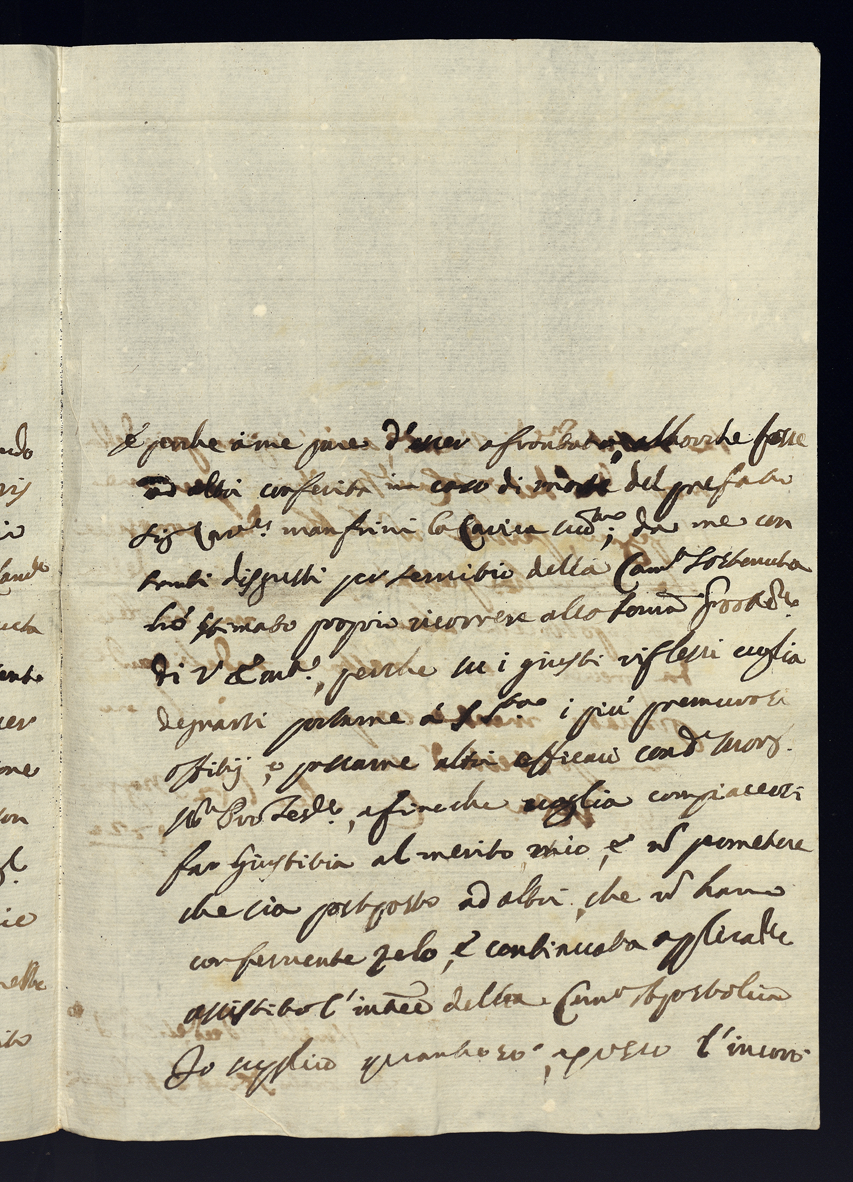 è perche à me pare d'esser afrontato, allorche fosse
ad altri conferita in caso di morte del prefato
Sig manfrini la Carica; da me con
tanti disgusti per servitio della Cam.ª sostenuta
hò stimato proprio ricorrere alla
di V, perche su i giusti riflessi voglia
degnarsi portarne à i più premurosi
offitij, e passarne altri efficaci con d.º Mons.
, afineche voglia compiacersi
far Giustitia al merito mio, è nõ permetere
che sia postposto ad altri, che nõ hanno
con fervente zelo, è continuata
assistito l'intẽe della Cam.ª Apostolica
Io suplico, apresso l'incoro